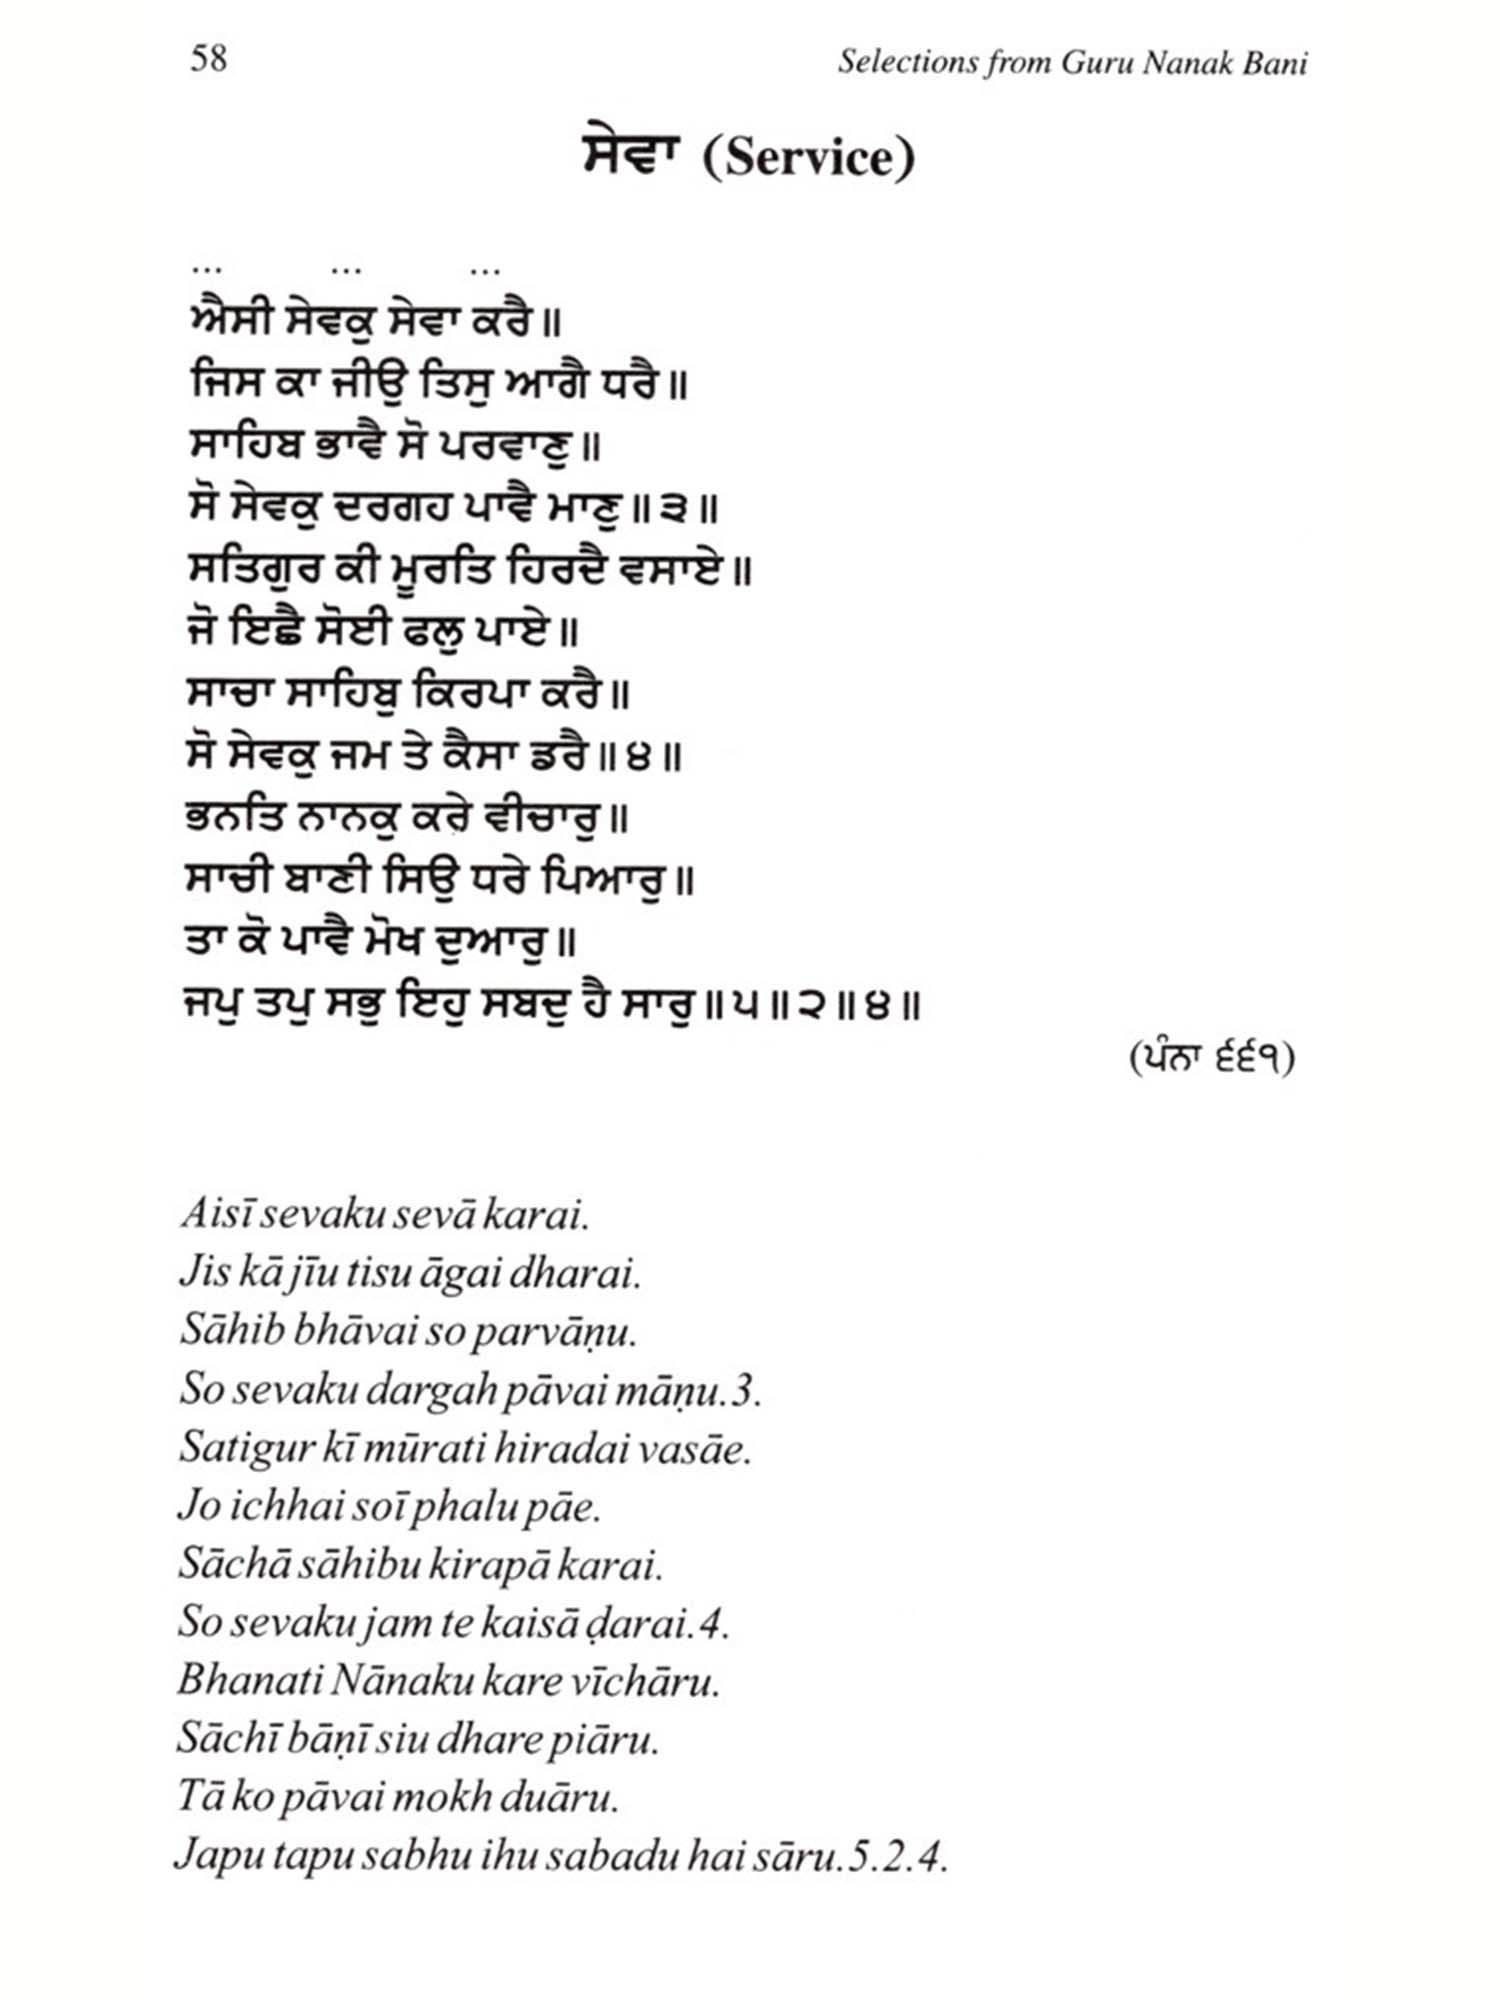 58 Selections from Guru Nanak Bani
ਸੇਵਾ (Service)
... ... ...
ਐਸੀ ਸੇਵਕੁ ਸੇਵਾ ਕਰੈ॥
ਜਿਸ ਕਾ ਜੀਉ ਤਿਸੁ ਆਗੈ ਧਰੈ॥
ਸਾਹਿਬ ਭਾਵੈ ਸੋ ਪਰਵਾਣੁ॥
ਸੋ ਸੇਵਕੁ ਦਰਗਹ ਪਾਵੈ ਮਾਣੁ॥੩॥
ਸਤਿਗੁਰ ਕੀ ਮੂਰਤਿ ਹਿਰਦੈ ਵਸਾਏ॥
ਜੋ ਇਛੈ ਸੋਈ ਫਲੁ ਪਾਏ॥
ਸਾਚਾ ਸਾਹਿਬੁ ਕਿਰਪਾ ਕਰੈ॥
ਸੋ ਸੇਵਕੁ ਜਮ ਤੇ ਕੈਸਾ ਡਰੈ॥੪॥
ਭਨਤਿ ਨਾਨਕੁ ਕਰੇ ਵੀਚਾਰੁ॥
ਸਾਚੀ ਬਾਣੀ ਸਿਉ ਧਰੇ ਪਿਆਰੁ॥
ਤਾ ਕੋ ਪਾਵੈ ਮੋਖ ਦੁਆਰੁ॥
ਜਪੁ ਤਪੁ ਸਭੁ ਇਹੁ ਸਬਦੁ ਹੈ ਸਾਰੁ॥੫॥੨॥੪॥
(ਪੰਨਾ ੬੬੧)
Aisī sevaku sevā karai.
Jis kā jīu tisu āgai dharai.
Sāhib bhāvai so parvāṇu.
So sevaku dargah pāvai māṇu.3.
Satigur kī mūrati hiradai vasāe.
Jo ichhai soī phalu pāe.
Sāchā sāhibu kirapā karai.
So sevaku jam te kaisā ḍarai.4.
Bhanati Nānaku kare vīchāru.
Sāchī bāṇī siu dhare piāru.
Tā ko pāvai mokh duāru.
Japu tapu sabhu ihu sabadu hai sāru.5.2.4.